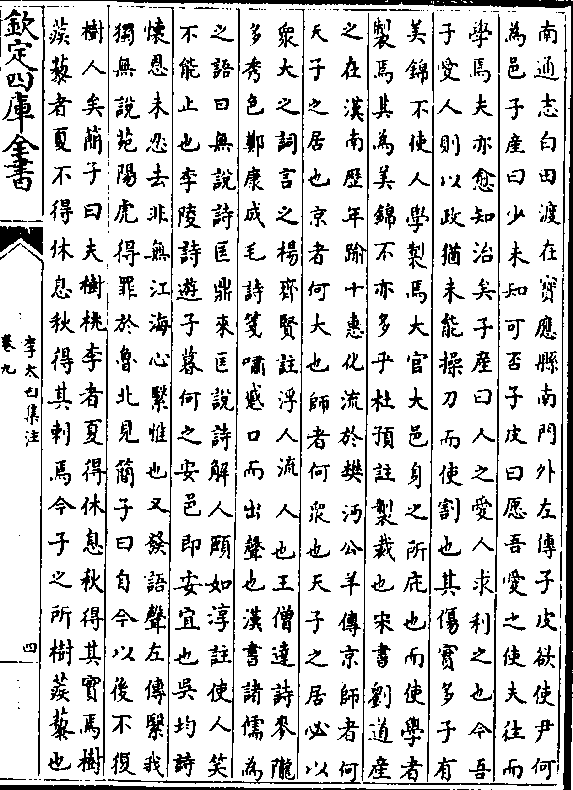 南通志白田渡在寳應縣南門外左傳子皮欲使尹何
為邑子産曰少未知可否子皮曰愿吾愛之使夫往而
學焉夫亦愈知治矣子產曰人之愛人求利之也今吾
子愛人則以政猶未能操刀而使割也其傷實多子有
美錦不使人學製焉大官大邑身之所庇也而使學者
製焉其為美錦不亦多乎杜預註製裁也宋書劉道産
之在漢南歴年踰十惠化流於樊沔公羊傳京師者何
天子之居也京者何大也師者何衆也天子之居必以
衆大之詞言之楊齊賢註浮人流人也王僧達詩麥隴
多秀色鄭康成毛詩箋嘯蹙口而出聲也漢書諸儒為
之語曰無說詩匡鼎來匡說詩解人頤如淳註使人笑
不能止也李陵詩遊子暮何之安邑即安宜也吳均詩
懐恩未忍去非無江海心繄惟也又發語聲左傳繄我
獨無說苑陽虎得罪於魯北見簡子曰自今以後不復
樹人矣簡子曰夫樹桃李者夏得休息秋得其實焉樹
蒺藜者夏不得休息秋得其刺焉今子之所樹蒺藜也
欽定四庫全書
李太白集注
卷九
四